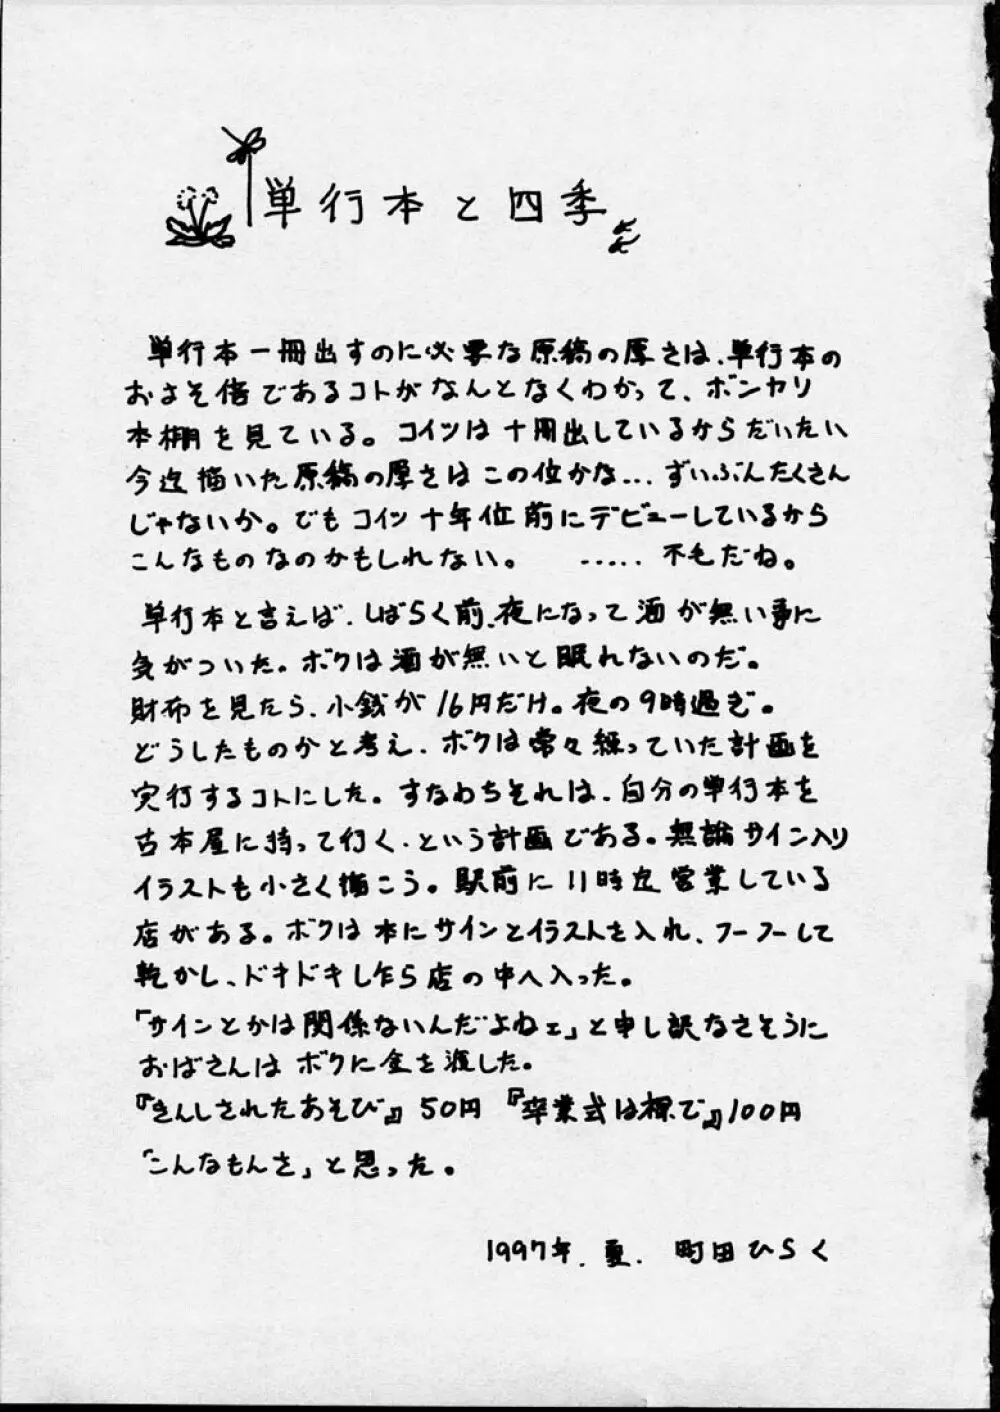 単行本と四季
単行本一冊出すのに必要な原稿の厚さは、単行本の
おさそ倍であるコトがなんとなくわかって、ボンヤリ
本棚を見ている。コイツは十冊出しているからだいたい
今迄描いた原稿の厚さはこの位かな... ずいぶんたくさん
じゃないか。でもコイツ十年位前にデビューしているから
こんなものなのかもしれない。 ..... 不毛だね。
単行本と言えば、しばらく前、夜になって酒が無い事に
気がついた。ボクは酒が無いと眠れないのだ。
財布を見たら、小銭が16円だけ。夜の9時過ぎ。
どうしたものかと考え、ボクは常々練っていた計画を
実行するコトにした。すなわちそれは、自分の単行本を
古本屋に持って行く、という計画である。無論サイン入り
イラストも小さく描こう。駅前に11時迄営業している
店がある。ボクは本にサインとイラストを入れ、フーフーして
乾かし、ドキドキし乍ら店の中へ入った。
「サインとかは関係ないんだよねェ」と申し訳なさそうに
おばさんはボクに金を渡した。
『きんしされたあそび』50円 『卒業式は裸で』100円
「こんなもんさ」と思った。
1997年、夏、 町田ひらく